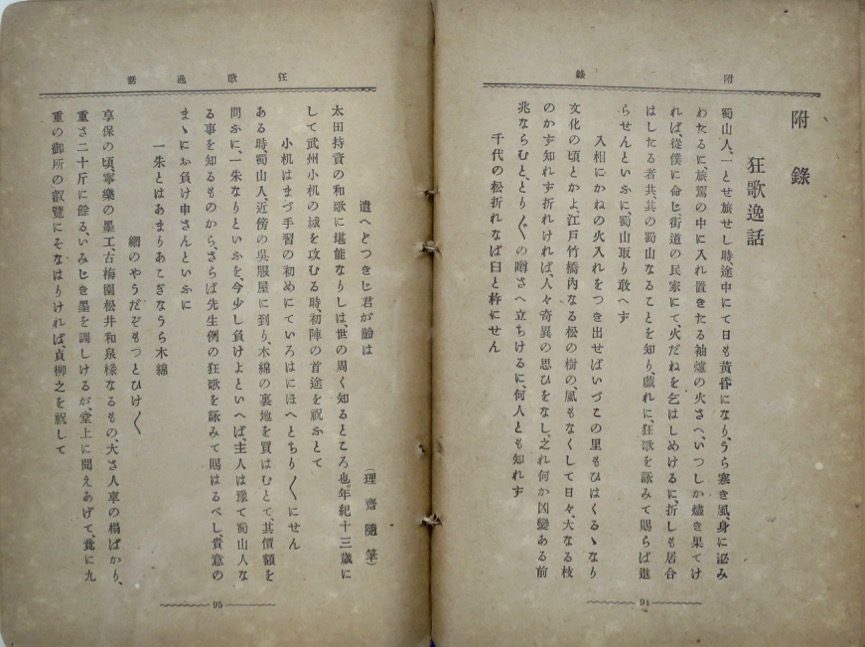 附錄
附錄
狂歌逸話
蜀山人、一とせ旅せし時、途中にて日も黃昏になり、うら寒き風身に泌み
わたるに、旅駕の中に入れ置きたる袖爐の火さへ、いつしか燼き果てけ
れば、從僕に命じ街道の民家にて、火だねを乞はしめけるに、折しも居合
はしたる者共、其の蜀山なることを知り、戯れに、狂歌を詠みて賜らば進
らせんといふに、蜀山取り敢へず
入相にかねの火入れをつき出せばいづこの里もひはくるゝなり
文化の頃とかよ、江戸竹橋內なる松の樹の、風もなくして日々、大なる枝
のかず知れず折れければ、人々奇異の思ひをなし、之れ何か凶變ある前
兆ならむと、とり〴〵の噂さへ立ちけるに、何人とも知れず
千代の松折れなば臼と杵にせん
94
狂歌逸話
遣へどつきじ君が齡は
(理齋隨筆)
太田持資の和歌に堪能なりしは、世の周く知るところ也。年紀十三歲に
して武州小机の城を攻むる時、初陣の首途を祝ふとて
小机はまづ手習の初めにていろはにほへとちり〴〵にせん
ある時、蜀山人、近傍の吳服屋に到り、木綿の裏地を買はむとて、其價額を
問ふに、一朱なりといふを、今少し負けよといへば、主人は豫て蜀山人な
る事を知るものから、さらば先生例の狂歌を詠みて賜はるべし、貴意の
まゝにお負け申さんといふに
一朱とはあまりあこぎなうら木綿
網のやうだぞもつとひけ〳〵
享保の頃、寧樂の墨工、古梅園松井和泉橡なるもの、大さ人車の榻ばかり、
重さ二十斤に餘る、いみじき墨を調しけるが、堂上に聞えあげて、竟に九
重の御所の叡覽にそなはりければ、貞柳之を祝して
95